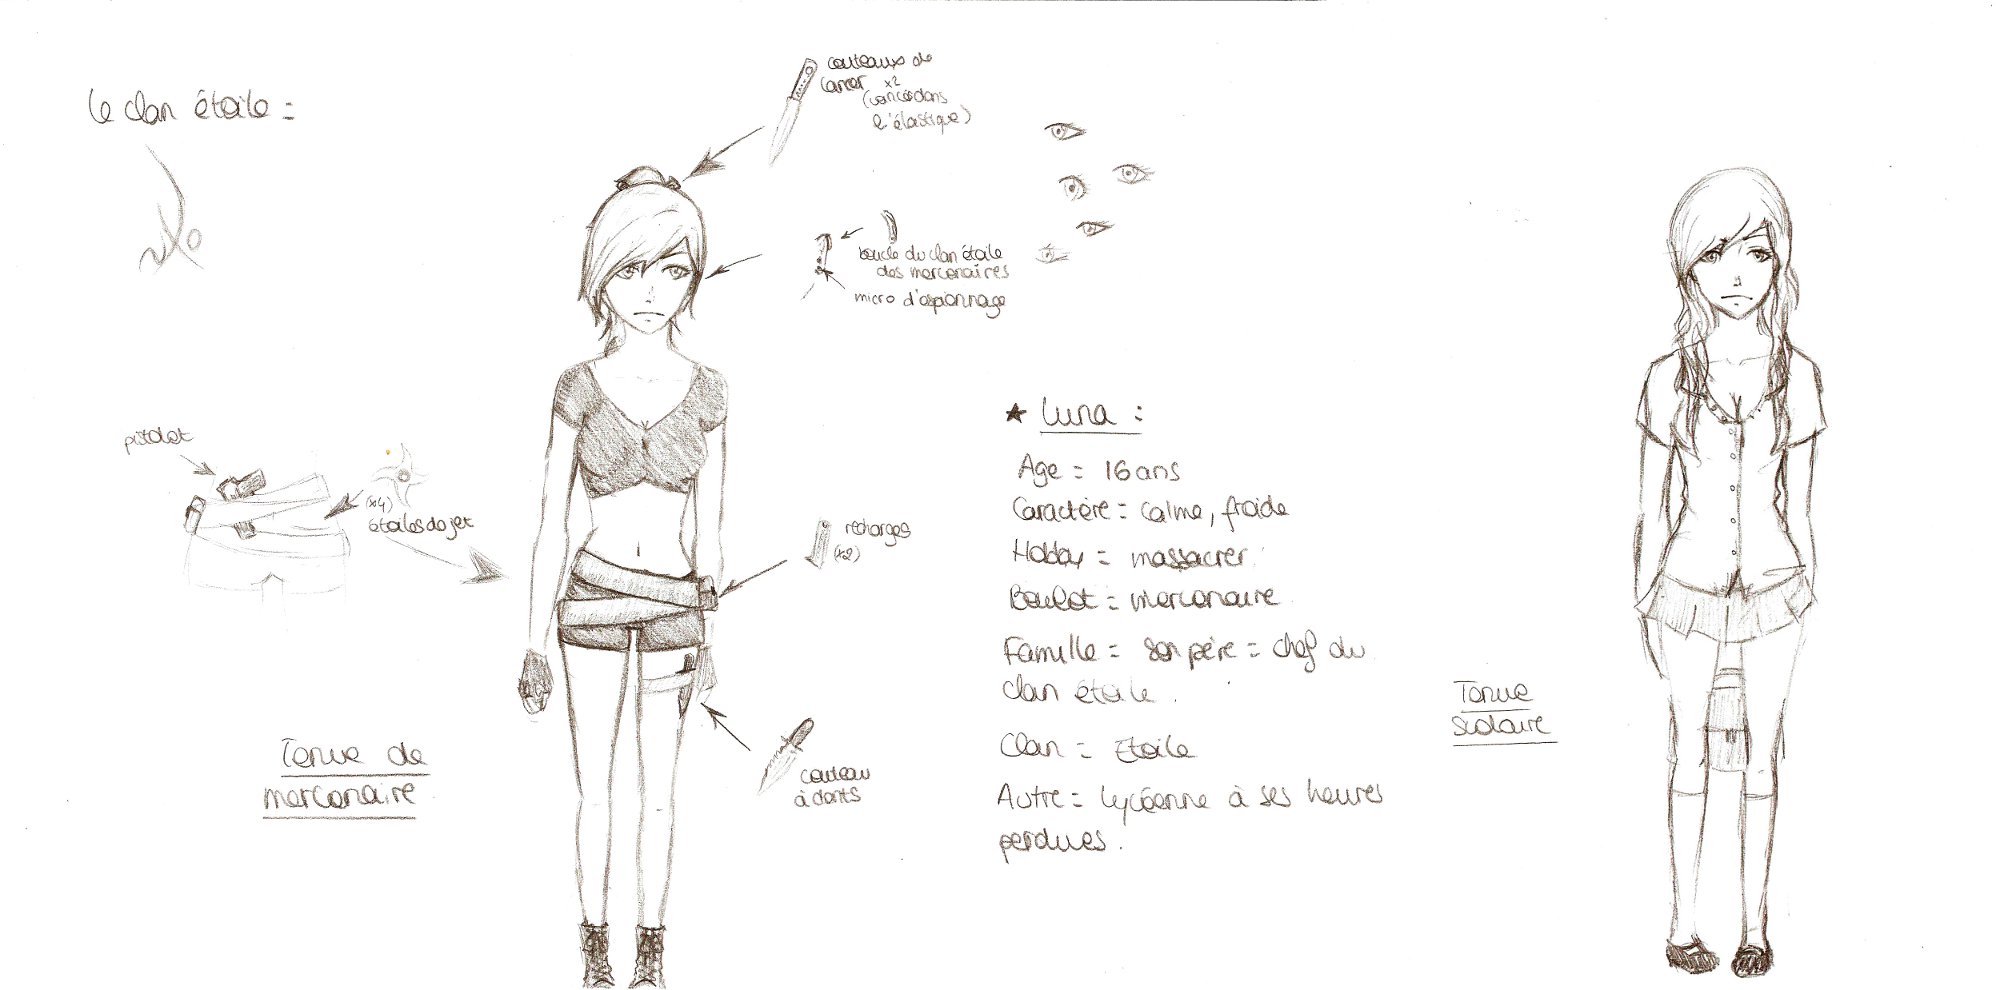 le clan étoile =
couteaux de
lancer x2
(coincés dans
l'élastique)
boucle du clan étoile
des mercenaires
micro d'espionnage
pistolet
(x4)
étoiles de jet
recharges
(x2)
couteau
à dents
Tenue de
mercenaire
★ Luna :
Age = 16 ans
Caractère = calme, froide
Hobby = massacrer
Boulot = mercenaire
Famille = son père = chef du
clan étoile.
Clan = Etoile
Autre = lycéenne à ses heures
perdues.
Tenue
scolaire